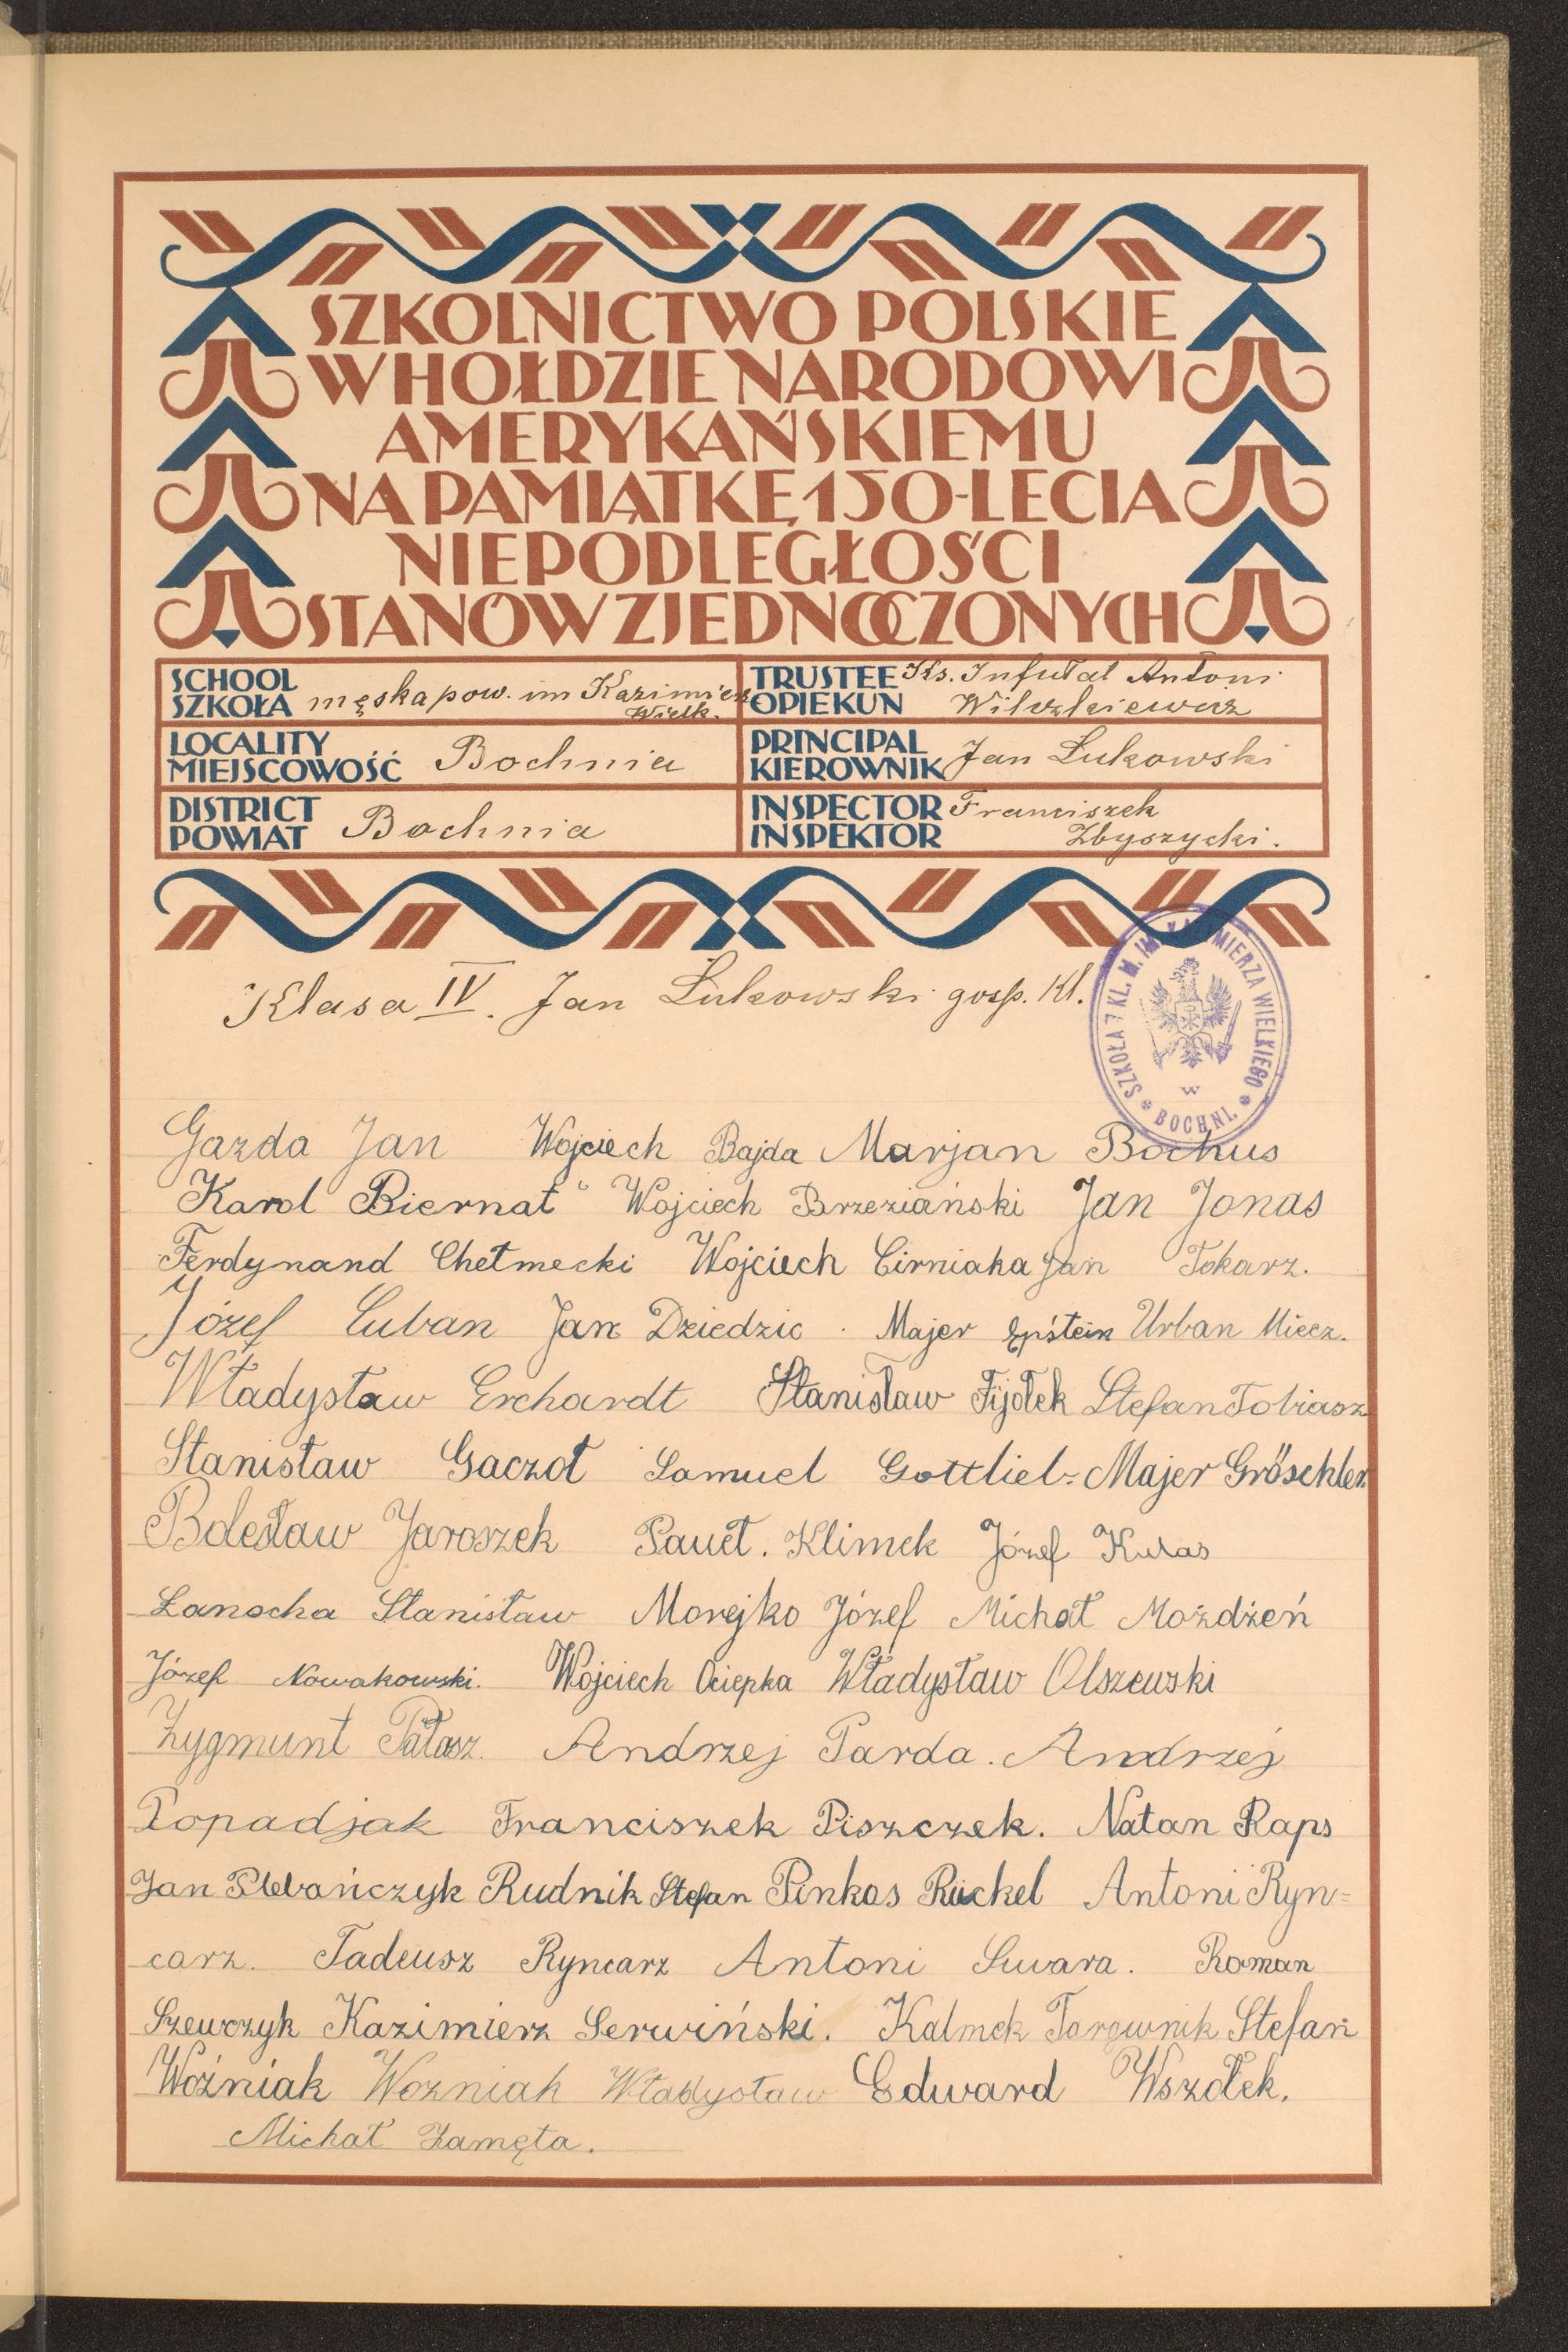 SZKOLNICTWO POLSKIE
W HOŁDZIE NARODOWI
AMERYKAŃSKIEMU
NA PAMIĄTKĘ 150-LECIA
NIEPODLEGŁOŚCI
STANÓW ZJEDNOCZONYCH
SCHOOL
SZKOŁA męska pow. im Kazimierz
Wielk.
TRUSTEE Ks. Infułat Antoni
OPIEKUN Wilczkiewicz
LOCALITY
MIEJSCOWOŚĆ Bochnia
PRINCIPAL
KIEROWNIK Jan Łukowski
DISTRICT
POWIAT Bochnia
INSPECTOR Franciszek
INSPEKTOR Zbyszycki.
Klasa IV. Jan Łukowski gosp. Kl.
SZKOŁA 7 KL. M. IM. KAZIMIERZA WIELKIEGO
W
BOCHNI.
Gazda Jan Wojciech Bajda Marjan Bochus
Karol Biernat Wojciech Brzeziański Jan Jonas
Ferdynand Chełmecki Wojciech Cirniaka Jan Tokarz.
Józef Cuban Jan Dziedzic. Majer Epśtein Urban Miecz.
Władysław Erchardt Stanisław Fijołek Stefan Tobiasz
Stanisław Gaczoł Samuel Gottlieb Majer Gröschler
Bolesław Jaroszek Paweł. Klimek Józef Kukas
Łanocha Stanisław Morejko Józef Michał Możdżeń
Józef Nowakowski. Wojciech Ociepka Władysław Olszewski
Zygmunt Pałasz. Andrzej Parda. Andrzej
Popadjak Franciszek Piszczek. Natan Raps
Jan Plebańczyk Rudnik Stefan Pinkas Rückel Antoni Ryn=
carz. Tadeusz Ryncarz Antoni Suwara. Roman
Szewczyk Kazimierz Serwiński. Kalmek Targownik Stefan
Woźniak Woźniak Władysław Edward Wszołek.
Michał Zamęta.